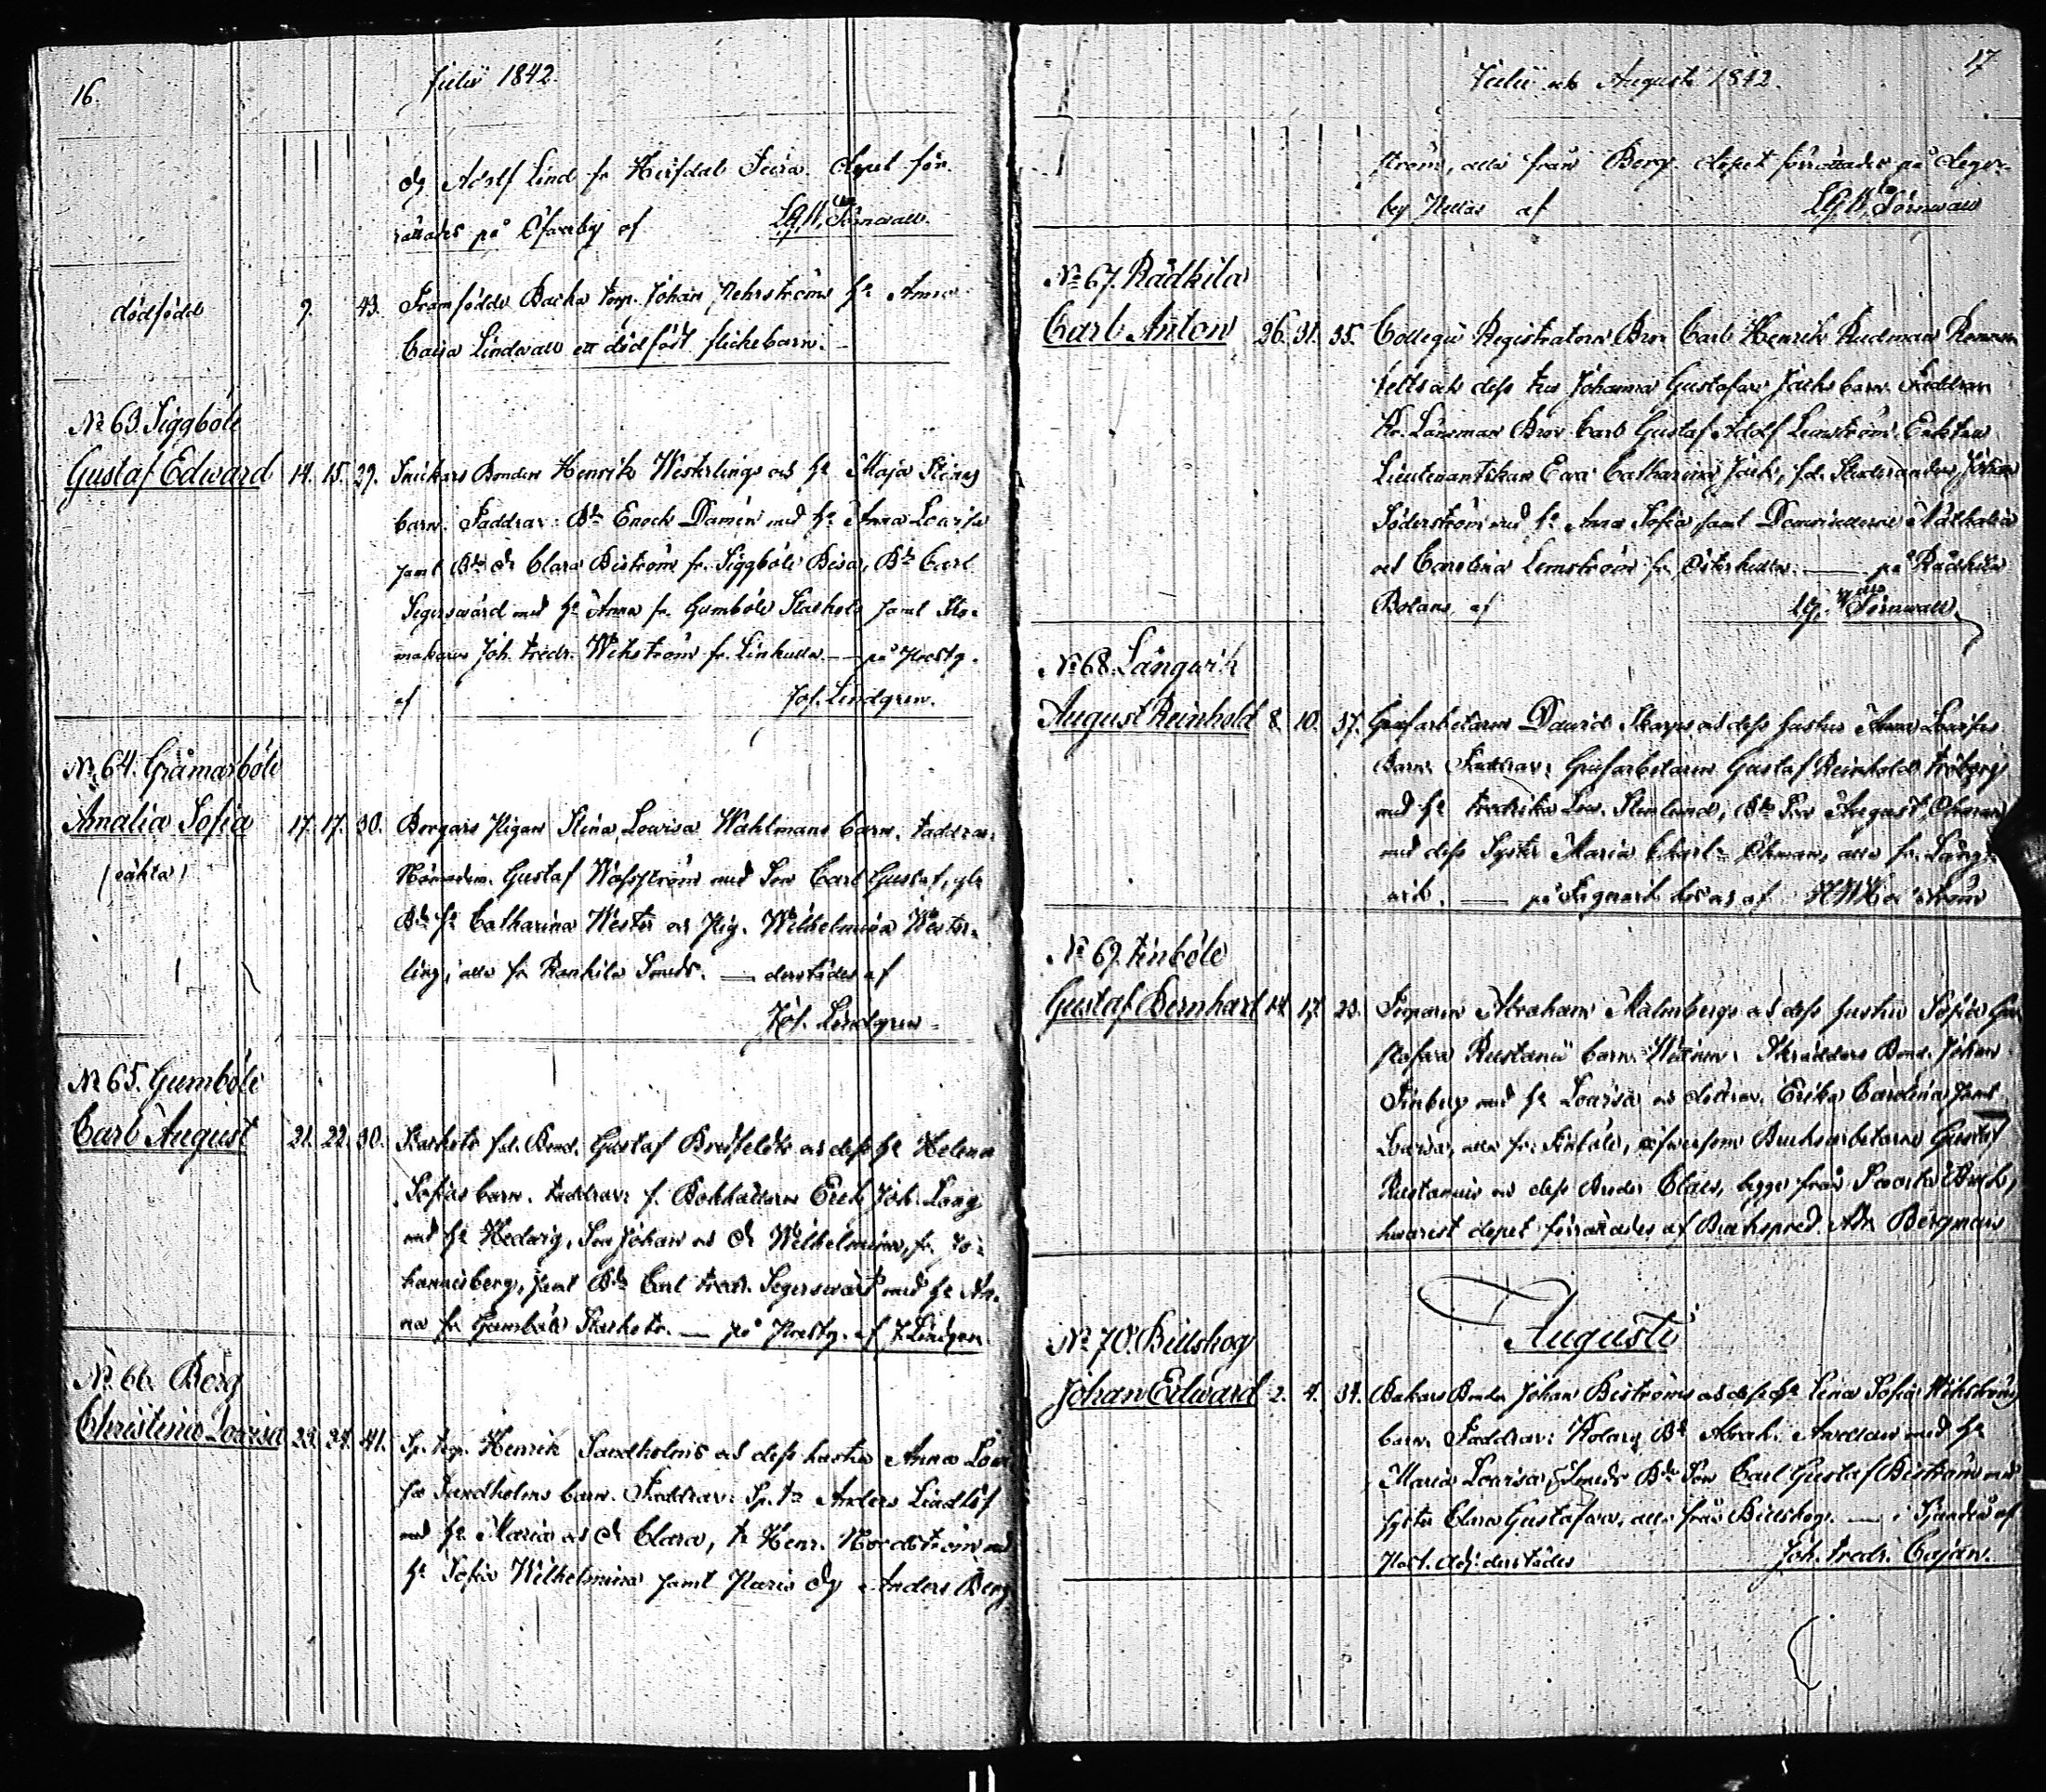 16.
Julii 1842
Dg Adolf Lind fr Heifdal Jusa. Dopet för-
rättades på Ofvanby af L.G.W. Törnwall.
dödfödd 9. 43. Framfödde Backa torp. Johan Fehrströms h:u Anna
Caisa Lindwall ett dödfödt flickebarn.
No 63. Siggböle
Gustaf Edward 14. 15. 29. Snickars Bonden Henrik Westerlings och h:u Maja Stinas
barn. Faddrar: Bd Enoch Damén med h:u Anna Lovisa
samt Bds dr Clara Biström fr. Siggböle Bisa, Bd Carl
Segersvärd med h:u Anna fr. Gumböle Starkots samt Sko-
makaren Joh. Fredr. Wikström fr. Linkulla — på Prestg.
af Joh. Lindgren.
No 64. Gråmarböle
Amalia Sofia 17. 17. 30. Borgars Pigan Stina Lovisa Wahlmans barn. Faddrar:
(oäkta) Nämndem. Gustaf Wasström med Son Carl Gustaf, gla
Bd h:u Catharina Wester och Pig. Wilhelmina Wester-
ling, alla fr Rankila Smeds. — derstädes af
Joh. Lindgren
No 65. Gumböle
Carl August 21. 22. 30. Starkots fd. Bond. Gustaf Bredfeldts och dess h:u Helena
Sofias barn. Faddrar: f. Bokhållaren Erik Joh. Lång
med h:u Hedvig, Son Johan och dr Wilhelmina, fr. Jo-
hannisberg, samt Bd Carl Fredr. Segersvärd med h:u An-
na fr Gumböle Starkots. — på Prestg. af J. Lindgren
No 66. Berg
Christina Lovisa 23. 24. 41. Sp. torp. Henrik Sandholms och dess hustru Anna Lovi
sa Sandholms barn. Faddrar: Sp. to Anders Lindlöf
med h:u Maria och dr Clara, to Henr. Nordström med
h:u Sofia Wilhelmina samt Maria Dg Anders Berg
17
Julii och Augusti 1842.
ström, alla från Berg. Dopet förrättades på Leger-
by Nellas af L.G.W. Törnwall
No 67. Rådkila
Carl Anton 26. 31. 35. Collegii Registratorn Bror Carl Henrik Rudman
och dess fru Johanna Gustafava Jacks barn. Faddrar
Kr. Länsman Bror Carl Gustaf Adolf Lemström, Enkefru
Lieutenantskan Eva Catharina Jack, fd. Studeranden Johan
Söderström med h:u Anna Sofia samt Demoisellerne Nathalia
och Carolina Lemström fr. Österkulla. — på Rådkila
Bolars, af L.G.W. Törnwall
No 68. Långwik
August Reinhold 8. 10. 37. Grufarbetaren David Skarps och dess hustru Anna Lovisas
Barn. Faddrar: Grufarbetaren Gustaf Reinhold Friberg
med h:u Fredrika Lov. Stenlund, Bds Son August Öhman
med dess Syster Maria Charl. Öhman, alla fr. Lång-
wik. —
No 69. Finböle
Gustaf Bernhard 14. 17. 23. Torparen Abraham Malmbergs och dess hustru Sofia Gu
stafva Rustanii barn. Wittnen: Skräddars Bond. Johan
Finberg med h:u Lovisa och döttrar. Erika Carolina samt
Lovisa, alla fr. Finböle, äfvensom Bruksarbetaren Gustaf
Rustanius och dess Broder Claes, begge från Svartå Bruk,
hvarest dopet förrättades af Brukspred. Adr. Bergman
Augusti
No 70. Billskog
Johan Edward 2. 4. 34. Bakars Bonden Johan Biströms och dess h:u Lena Sofia Wikströms
barn. Faddrar: Kolarg Bd Abrah. Avellan med h:u
Maria Lovisa, Smeds Bds Son Carl Gustaf Biström med
syster Clara Gustafava, alla från Billskog. — i Sjundeå af
Past. Adj. derstädes Joh. Fredr. Cajan.